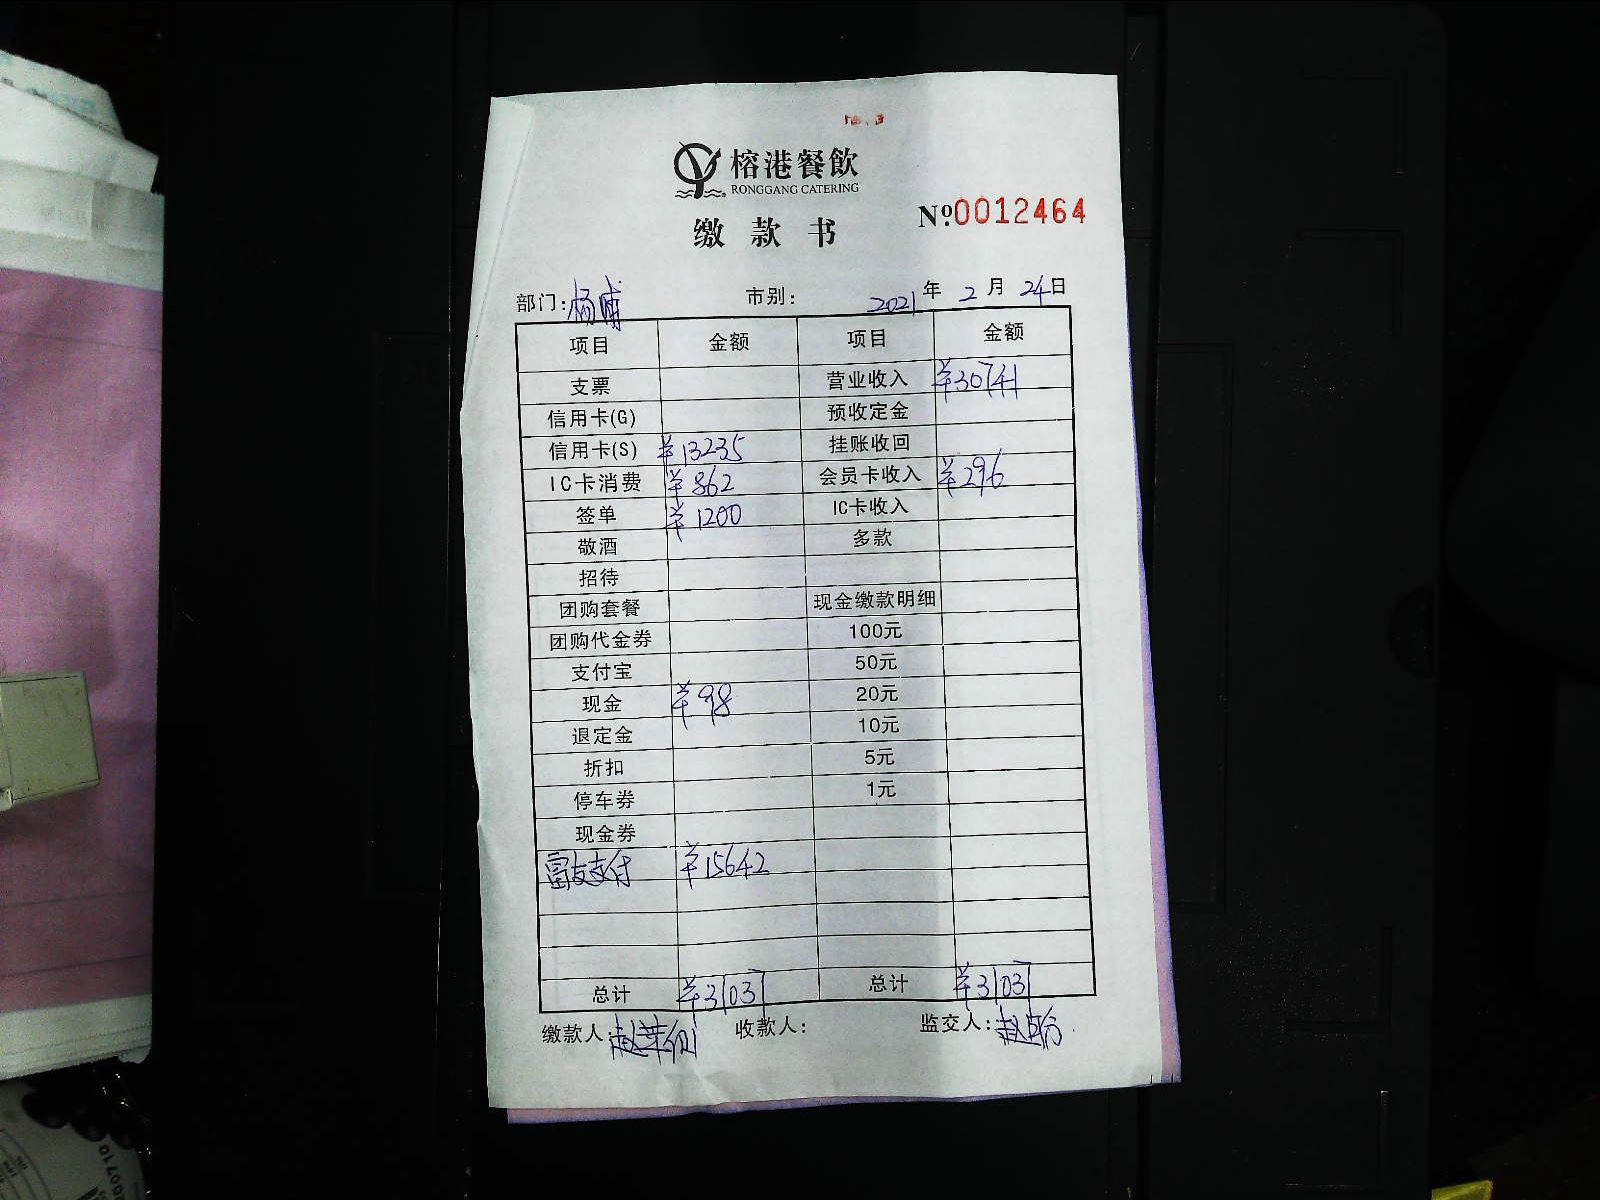 榕港餐飲
RONGGANG CATERING
缴款书
№0012464
部门:杨浦 市别: 2021年2月24日
项目 金额 项目 金额
支票 营业收入 ¥30741
信用卡(G) 预收定金
信用卡(S) ¥13235 挂账收回
IC卡消费 ¥862 会员卡收入 ¥296
签单 ¥1200 IC卡收入
敬酒 多款
招待
团购套餐 现金缴款明细
团购代金券 100元
支付宝 50元
现金 ¥98 20元
退定金 10元
折扣 5元
停车券 1元
现金券
富友支付 ¥15642
总计 ¥31037 总计 ¥31037
缴款人: 收款人: 监交人: